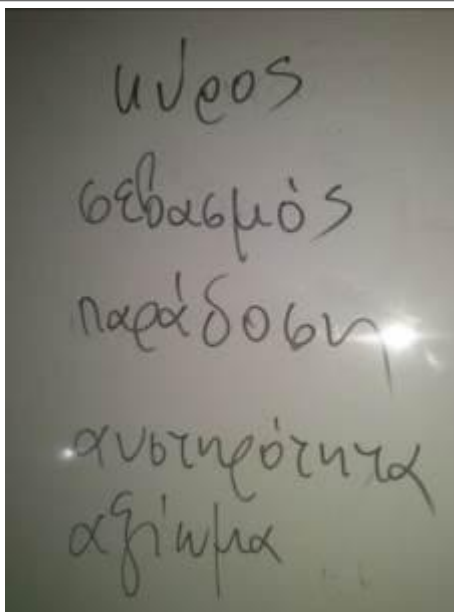 κύρος
σεβασμός
παράδοση
αυστηρότητα
αξίωμα